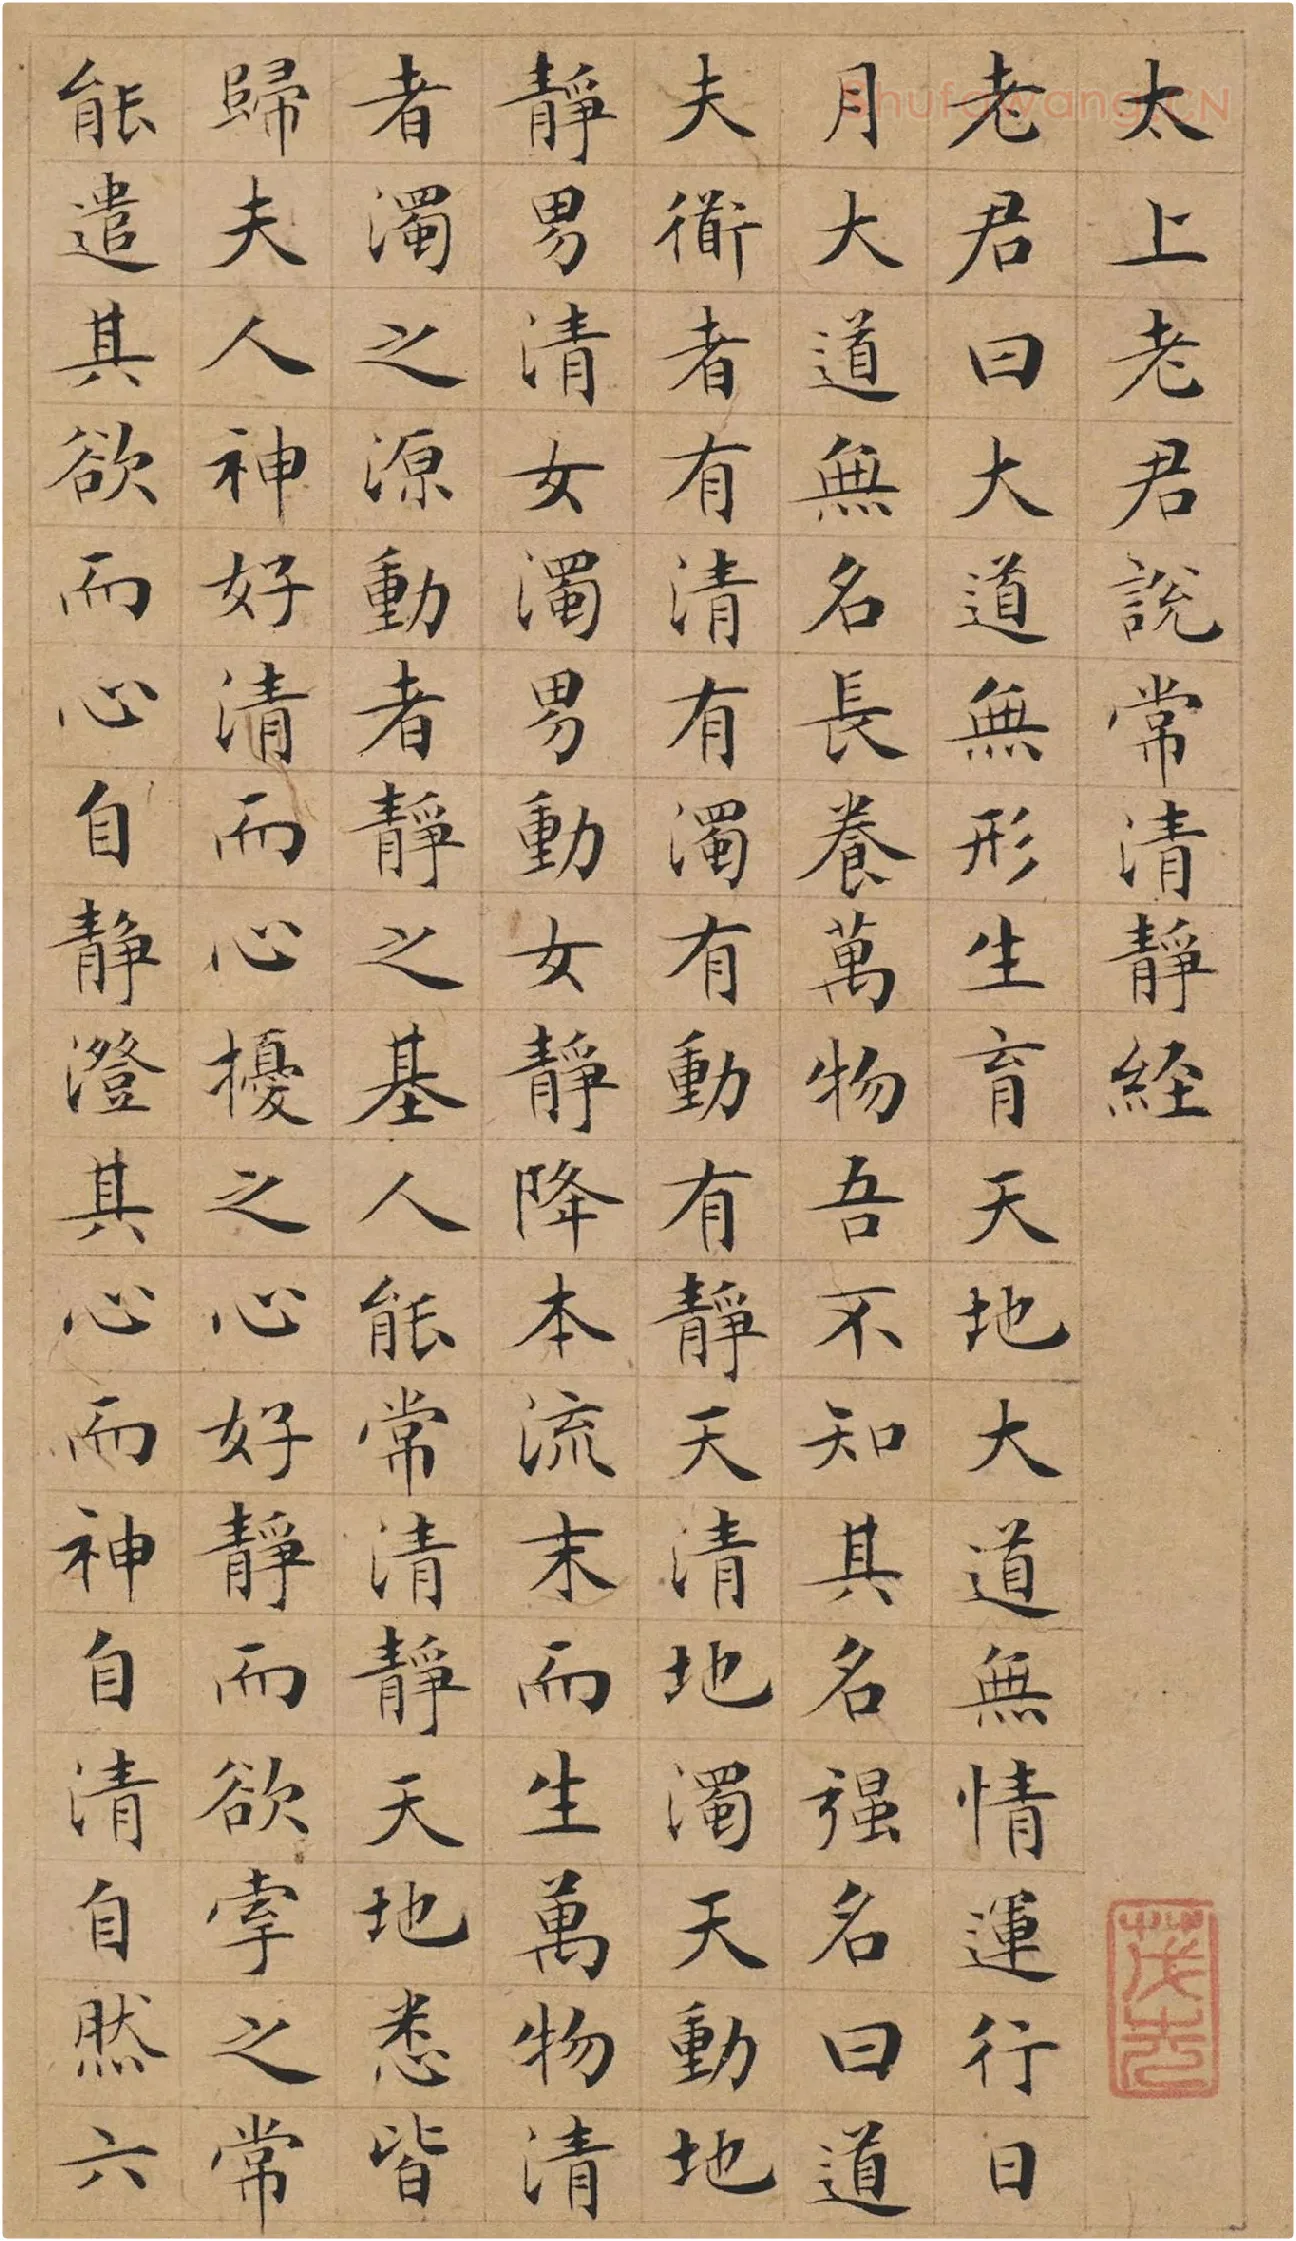 太上老君說常清靜経
老君曰大道無形生育天地大道無情運行日
月大道無名長養萬物吾不知其名强名曰道
夫衜者有清有濁有動有靜天清地濁天動地
靜男清女濁男動女靜降本流末而生萬物清
者濁之源動者靜之基人能常清靜天地悉皆
歸夫人神好清而心擾之心好靜而欲牽之常
能遣其欲而心自靜澄其心而神自清自然六
Shufawang.CN